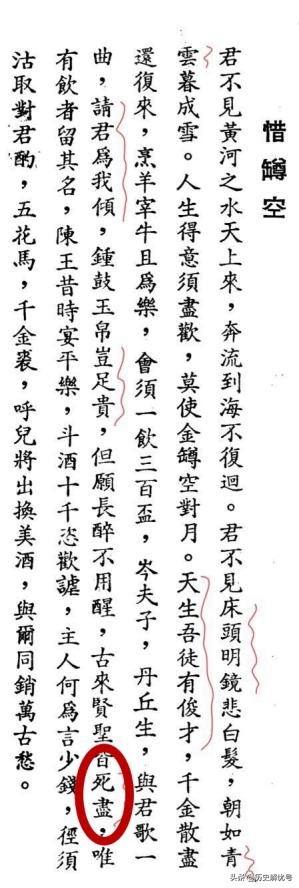 惜罇空
君不見黃河之水天上來，奔流到海不復迴。君不見床頭明鏡悲白髮，朝如青
雲暮成雪。人生得意須盡歡，莫使金罇空對月。天生吾徒有俊才，千金散盡
還復來，烹羊宰牛且為樂，會須一飲三百盃，岑夫子，丹丘生，與君歌一
曲，請君為我傾，鍾鼓玉帛豈足貴，但願長醉不用醒，古來賢聖皆死盡，唯
有飲者留其名，陳王昔時宴平樂，斗酒十千恣歡謔，主人何為言少錢，徑須
沽取對君酌，五花馬，千金裘，呼兒將出換美酒，與爾同銷萬古愁。
头条 @历史解忧号